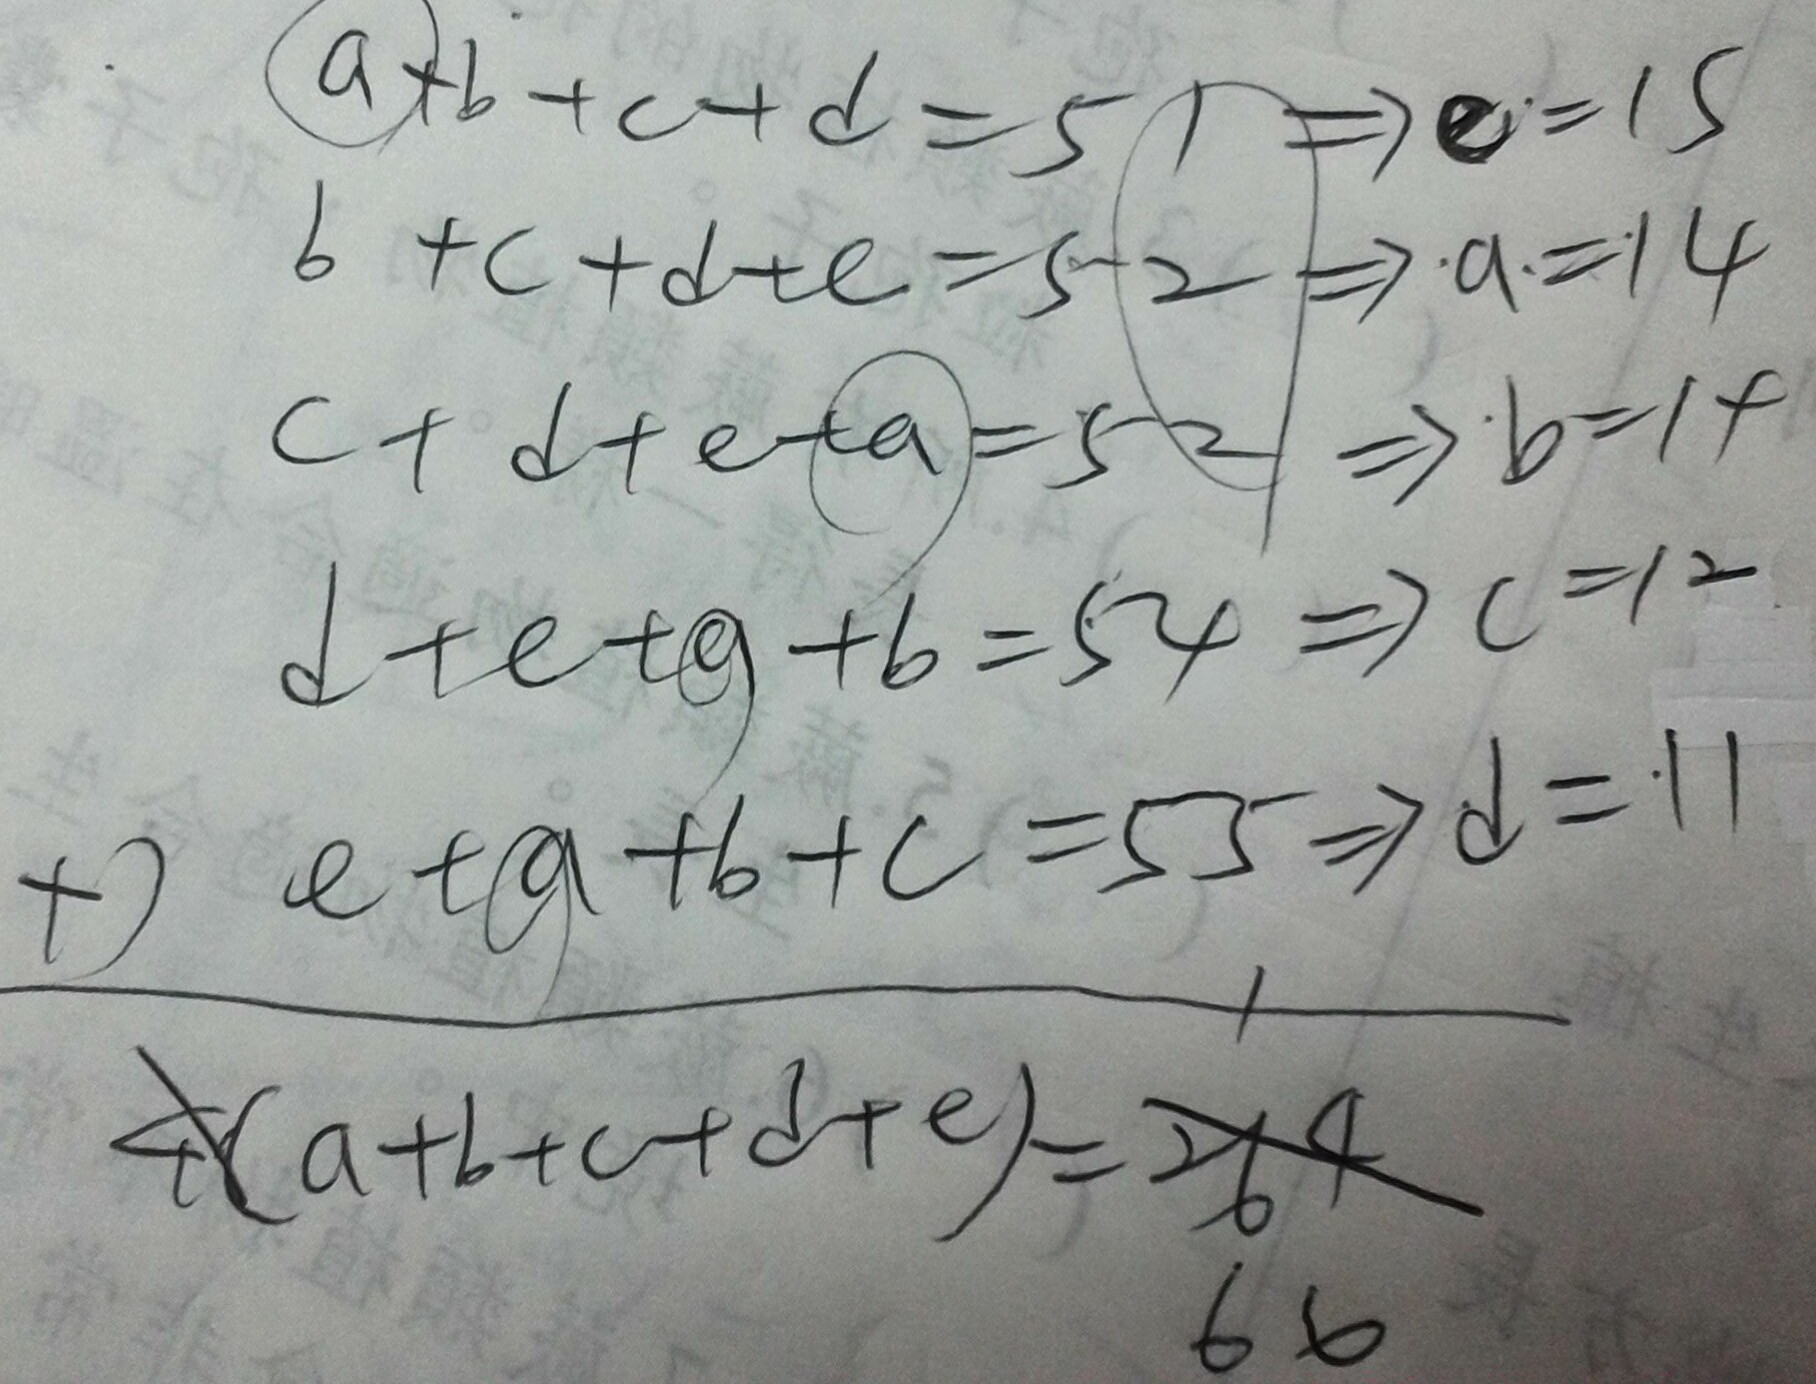 a+b+c+d=51 ⇒ e=15
b+c+d+e=52 ⇒ a=14
c+d+e+a=52 ⇒ b=14
d+e+a+b=54 ⇒ c=12
+) e+a+b+c=55 ⇒ d=11
4(a+b+c+d+e)=264
66